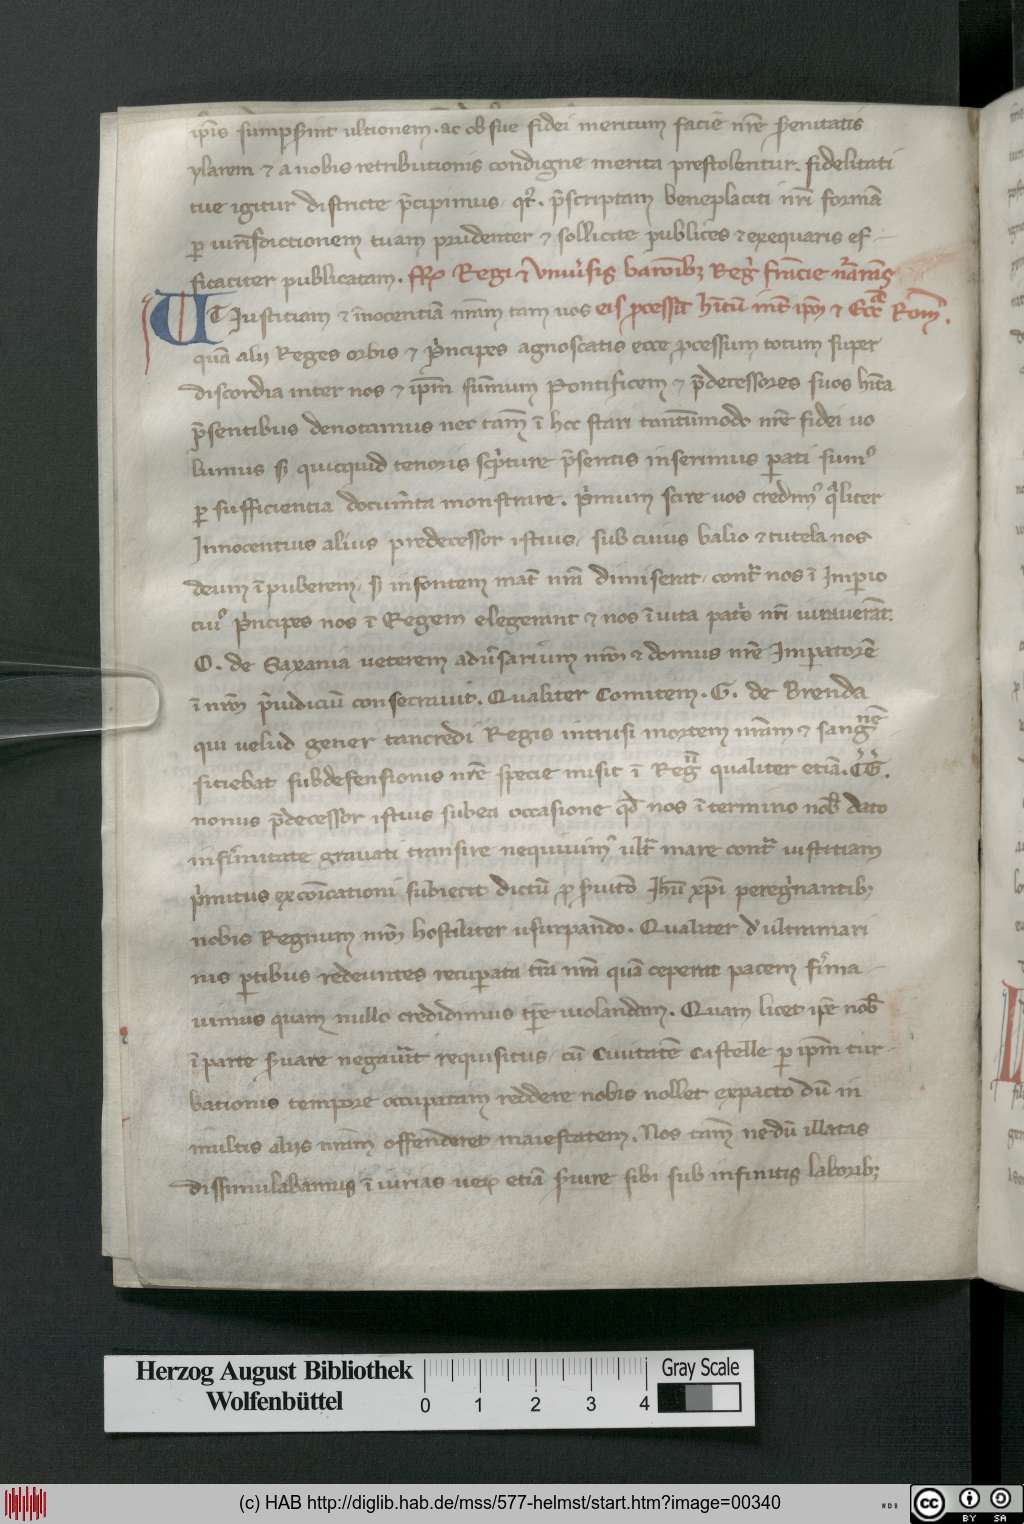 ip̄is sumpserint ultionem. ac ob sue fidei meritum faciē nr̄e s̄erenitatis
ylarem ⁊ a nobis retributionis condigne merita prestolentur. fidelitati
tue igitur districte p̄cipimus, qͣt̄. p̄scriptam beneplaciti nr̄i formā
ꝑ iurisdictionem tuam prudenter ⁊ sollicite publices ⁊ exequaris ef-
ficaciter publicatam. Regi ⁊ Vniuͥsis baroībꝫ Regͥ francie
UT Justitiam ⁊ innocentiā nr̄am tam uos eis processū hītū int̄ ip̄m ⁊ Rom̄.
quā alij Reges orbis ⁊ Pͥncipes agnoscatis ecce ꝓcessum totum super
discordia inter nos ⁊ ip̄m sūmum Pontificem ⁊ p̄decessores suos hīta
p̄sentibus denotamus nec tam̄ ī hoc stari tantūmodo nr̄e fidei uo
lumus s̄ quicquid tenoris sc̄pture p̄sentis inserimus ꝑati sumꝰ
ꝑ sufficientia docum̄ta monstrare. Pͥmum scire uos credimꝰ qͣliter
Innocentius alius predecessor istius, sub cuius balio ⁊ tutela nos
dum īpuberem, s̄ insontem mat̄ nr̄a dimiserat, contͣ nos ī Imꝑio
cuiꝰ pͥncipes nos ī Regem elegerant ⁊ nos ī uita patͥs nr̄i iurauerāt.
O. de Saxania ueterem adūsarium nr̄m ⁊ domus nr̄e Imꝑatorē
ī nr̄m p̄iudiciū consecrauit. Qualiter Comitem. G. de Brenda
qui uelud gener tancredi Regis intrusi mortem nr̄am ⁊ sangͥnē
sitiebat sub defensionis nr̄e specie misit ī Regͫͫ qualiter etiā. GͥGͥ.
nonus p̄decessor istius sub ea occasione qd̄ nos ī termino nob̄ dato
infirmitate grauati transire nequiuimꝰ ultͣ mare contͣ iustitiam
pͥmitus excōicationi subiecit dictū ꝓ s̄uitō Jh̄u xp̄i peregͥnantibꝫ
nobis Regnum nr̄m hostiliter usurpando. Qualiter d' ultramari
nis ꝑtibus redeuntes recuꝑata t̄ra nr̄a quā ceperat pacem firma
uimus quam nullo credidimus tp̄re uiolandam. Quam licet ip̄e nob̄
ī parte s̄uare negauīt requisitus, cū Ciuitatē Castelle ꝑ ip̄m tur-
bationis tempore occupatam reddere nobis nollet ex pacto dū in
multis alijs nr̄am offenderet maiestatem. Nos tam̄ nedū illatas
dissimulabamus ī iurias ueꝝ etiā s̄uire sibi sub infinitis laboribꝫ
Herzog August Bibliothek
Wolfenbüttel
0 1 2 3 4
Gray Scale
(c) HAB http://diglib.hab.de/mss/577-helmst/start.htm?image=00340
WDB
cc BY SA